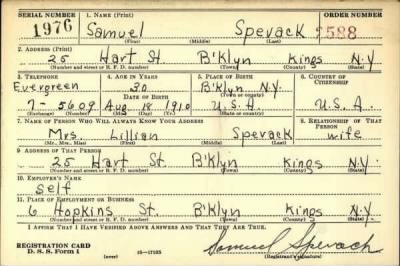 SERIAL NUMBER 1. NAME (Print) ORDER NUMBER
1976 Samuel Spevack 588
(First) (Middle) (Last)
2. ADDRESS (Print)
25 Hart St. B'Klyn Kings N.Y
(Number and street or R. F. D. number) (Town) (County) (State)
3. TELEPHONE 4. AGE IN YEARS 5. PLACE OF BIRTH 6. COUNTRY OF CITIZENSHIP
Evergreen 30 B'Klyn N.Y.
DATE OF BIRTH (Town or county)
7-5609 Aug 18 1910 U.S.A. U.S.A.
(Exchange) (Number) (Mo.) (Day) (Yr.) (State or country)
7. NAME OF PERSON WHO WILL ALWAYS KNOW YOUR ADDRESS 8. RELATIONSHIP OF THAT PERSON
Mrs. Lillian Spevack wife
(Mr., Mrs., Miss) (First) (Middle) (Last)
9. ADDRESS OF THAT PERSON
25 Hart St. B'Klyn Kings N.Y
(Number and street or R. F. D. number) (Town) (County) (State)
10. EMPLOYER'S NAME
self
11. PLACE OF EMPLOYMENT OR BUSINESS
6 Hopkins St. B'Klyn Kings N.Y
(Number and street or R. F. D. number) (Town) (County) (State)
I AFFIRM THAT I HAVE VERIFIED ABOVE ANSWERS AND THAT THEY ARE TRUE.
REGISTRATION CARD
D. S. S. Form 1 (over) 16—17105 Samuel Spevack